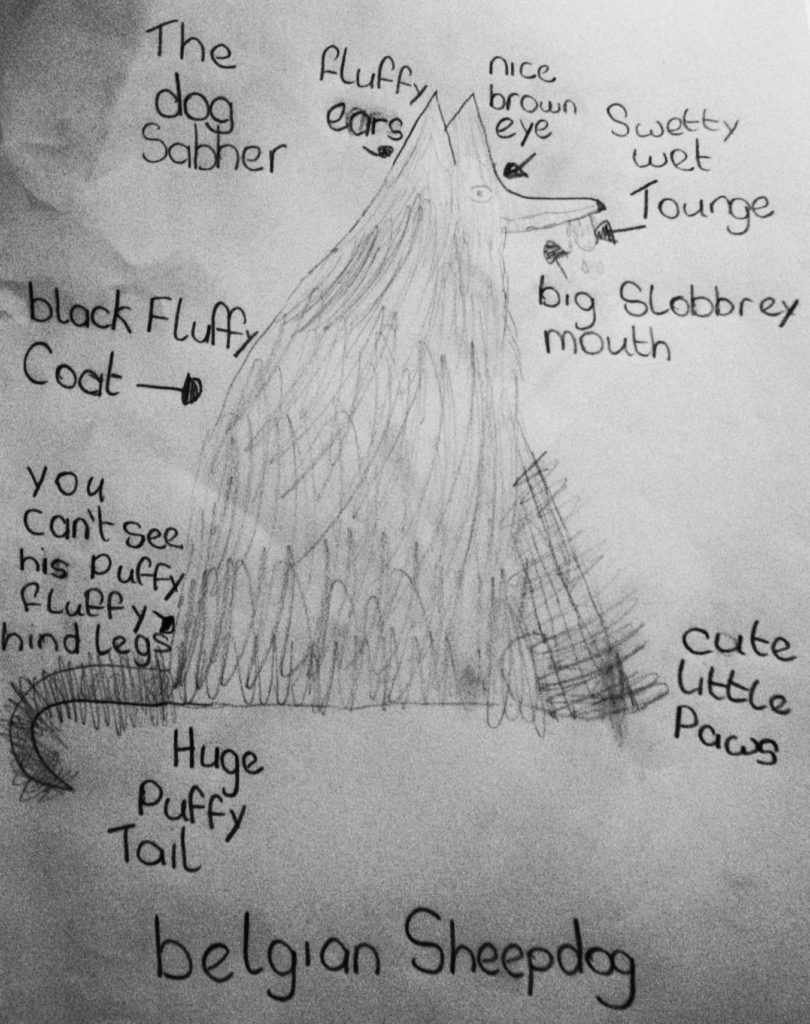 The
dog
Sabher
fluffy
ears
nice
brown
eye
Swetty
wet
Tounge
big Slobbrey
mouth
black Fluffy
Coat
you
can't see
his puffy
fluffy
hind legs
cute
little
Paws
Huge
Puffy
Tail
belgian Sheepdog